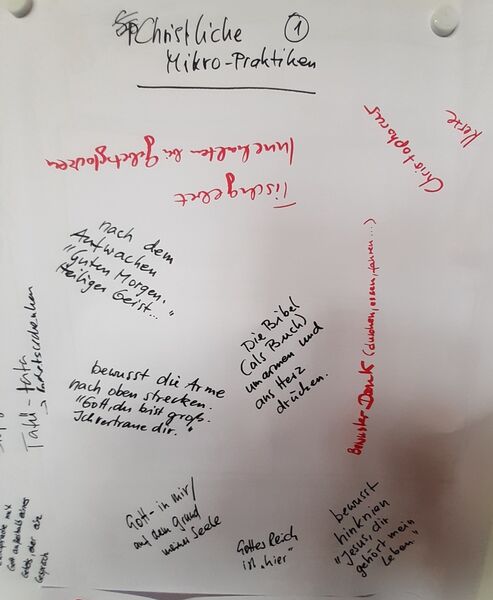 Christliche ①
Mikro-Praktiken
Kerze
Christophorus
Innehalten bei
Tischgebet
nach dem
Aufwachen
"Guten Morgen.
Heiliger Geist..."
Bewusster Dank (duschen, essen, fahren...)
Die Bibel
(als Buch)
umarmen und
ans Herz
drücken.
bewusst die Arme
nach oben strecken.
"Gott, du bist groß.
Ich vertraue dir."
Gott - in mir/
auf dem Grund
meiner Seele
Gottes Reich
ist "hier"
bewusst
hinknien
"Jesus, dir
gehört mein
Leben."
mit
Gott außerhalb eines
Gebets, eher ein
Gespräch